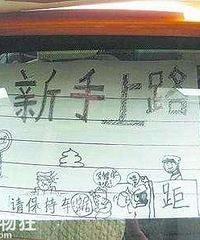 新手上路
请保持车距